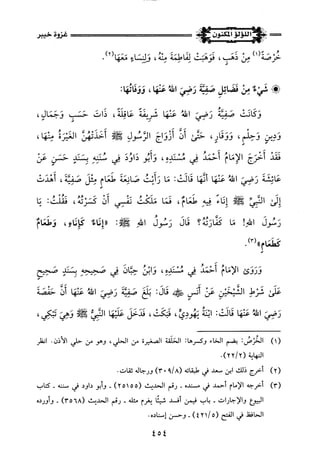 اللؤلؤ المكنون
غزوة خيبر
خُرْصَةً(١) مِنْ ذَهَبٍ، فَوَهَبَتْ لِفَاطِمَةَ مِنْهُ، وَلِنِسَاءٍ مَعَهَا(٢).
شَيْءٌ مِنْ فَضَائِلِ صَفِيَّةَ رَضِيَ اللهُ عَنْهَا، وَوَفَاتُهَا:
وَكَانَتْ صَفِيَّةُ رَضِيَ اللهُ عَنْهَا شَرِيفَةً عَاقِلَةً، ذَاتَ حَسَبٍ وَجَمَالٍ،
وَدِينٍ وَحِلْمٍ، وَوَقَارٍ، حَتَّى أَنَّ أَزْوَاجَ الرَّسُولِ ﷺ أَخَذَتْهُنَّ الْغَيْرَةُ مِنْهَا،
فَقَدْ أَخْرَجَ الإِمَامُ أَحْمَدُ فِي مُسْنَدِهِ، وَأَبُو دَاوُدَ فِي سُنَنِهِ بِسَنَدٍ حَسَنٍ عَنْ
عَائِشَةَ رَضِيَ اللهُ عَنْهَا أَنَّهَا قَالَتْ: مَا رَأَيْتُ صَانِعَةَ طَعَامٍ مِثْلَ صَفِيَّةَ، أَهْدَتْ
إِلَى النَّبِيِّ ﷺ إِنَاءً فِيهِ طَعَامٌ، فَمَا مَلَكْتُ نَفْسِي أَنْ كَسَرْتُهُ، فَقُلْتُ: يَا
رَسُولَ اللهِ! مَا كَفَّارَتُهُ؟ قَالَ رَسُولُ اللهِ ﷺ: «إِنَاءٌ كَإِنَاءٍ، وَطَعَامٌ
كَطَعَامٍ»(٣).
وَرَوَى الإِمَامُ أَحْمَدُ فِي مُسْنَدِهِ، وَابْنُ حِبَّانَ فِي صَحِيحِهِ بِسَنَدٍ صَحِيحٍ
عَلَى شَرْطِ الشَّيْخَيْنِ عَنْ أَنَسٍ ﷺ قَالَ: بَلَغَ صَفِيَّةَ رَضِيَ اللهُ عَنْهَا أَنَّ حَفْصَةَ
رَضِيَ اللهُ عَنْهَا قَالَتْ: ابْنَةُ يَهُودِيٍّ، فَبَكَتْ، فَدَخَلَ عَلَيْهَا النَّبِيُّ ﷺ وَهِيَ تَبْكِي،
(١) الخُرْصُ: بضم الخاء وكسرها: الحَلْقَة الصغيرة من الحلي، وهو من حلي الأذن. انظر
النهاية (٢٢/٢).
(٢) أخرج ذلك ابن سعد في طبقاته (٣٠٩/٨) ورجاله ثقات.
(٣) أخرجه الإمام أحمد في مسنده - رقم الحديث (٢٥١٥٥) - وأبو داود في سننه - كتاب
البيوع والإجارات - باب فيمن أفسد شيئًا يغرم مثله - رقم الحديث (٣٥٦٨) - وأورده
الحافظ في الفتح (٤٢١/٥) - وحسن إسناده.
٤٥٤